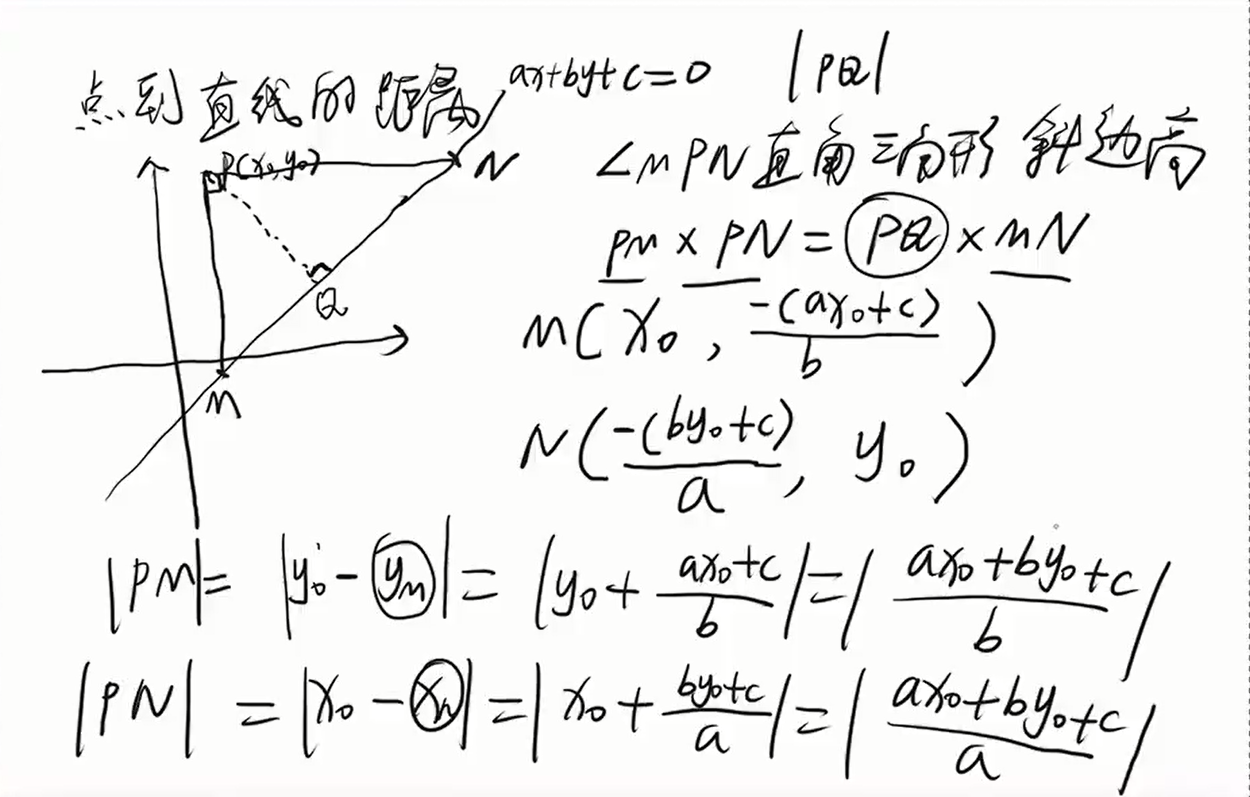 点到直线的距离
ax+by+c=0
|PQ|
P(x₀,y₀)
N
∠MPN直角三角形 斜边高
PM × PN = PQ × MN
Q
M(x₀, -(ax₀+c)/b)
M
N(-(by₀+c)/a, y₀)
|PM| = |y₀ - yₘ| = |y₀ + (ax₀+c)/b| = |(ax₀+by₀+c)/b|
|PN| = |x₀ - xₙ| = |x₀ + (by₀+c)/a| = |(ax₀+by₀+c)/a|